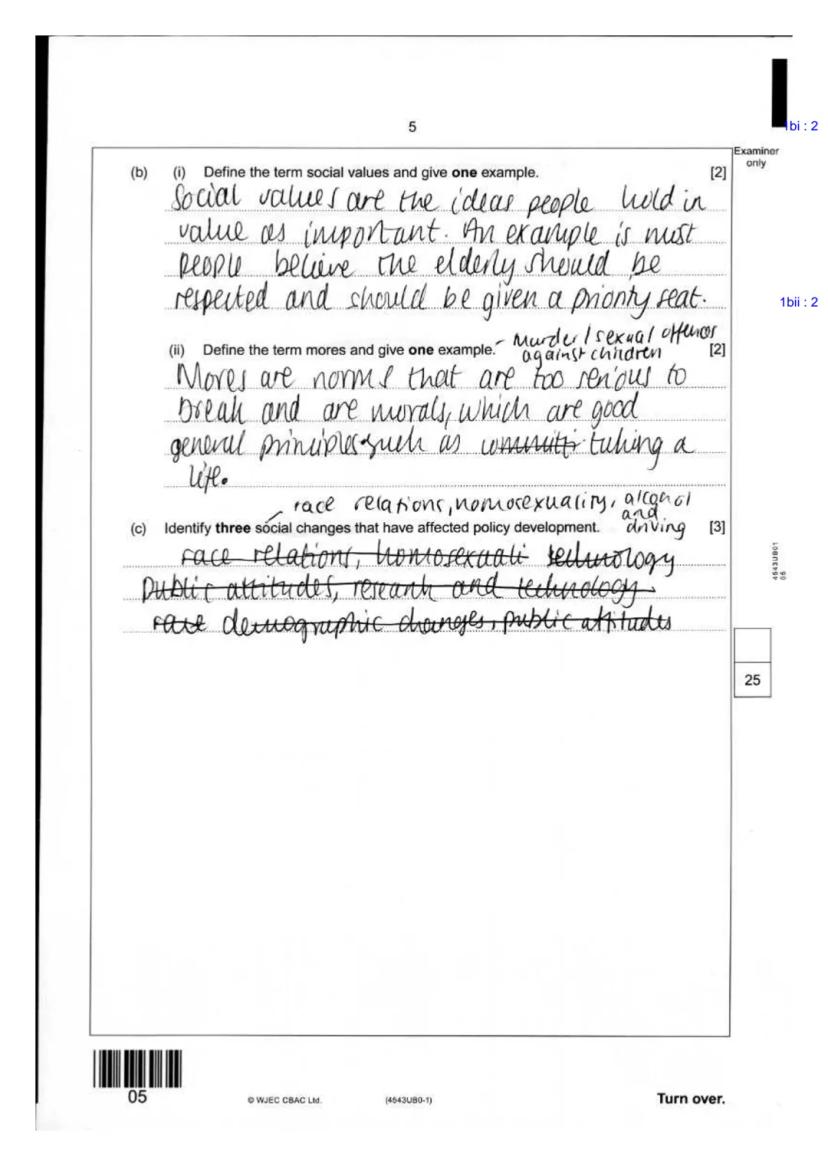 5
1bi : 2
Examiner
only
(b) (i) Define the term social values and give one example. [2]
Social values are the ideas people hold in
value as important. An example is most
people believe the elderly should be
respected and should be given a priority seat.
1bii : 2
- Murder / sexual offences
against children
(ii) Define the term mores and give one example. [2]
Mores are norms that are too serious to
break and are morals, which are good
general principles such as communiti taking a
life.
race relations, homosexuality, alcohol
and
driving
(c) Identify three social changes that have affected policy development. [3]
race relations, homosexuali technology
public attitudes, research and technology
race demographic changes, public attitudes
4543UB01
05
25
05
© WJEC CBAC Ltd. (4543UB0-1) Turn over.